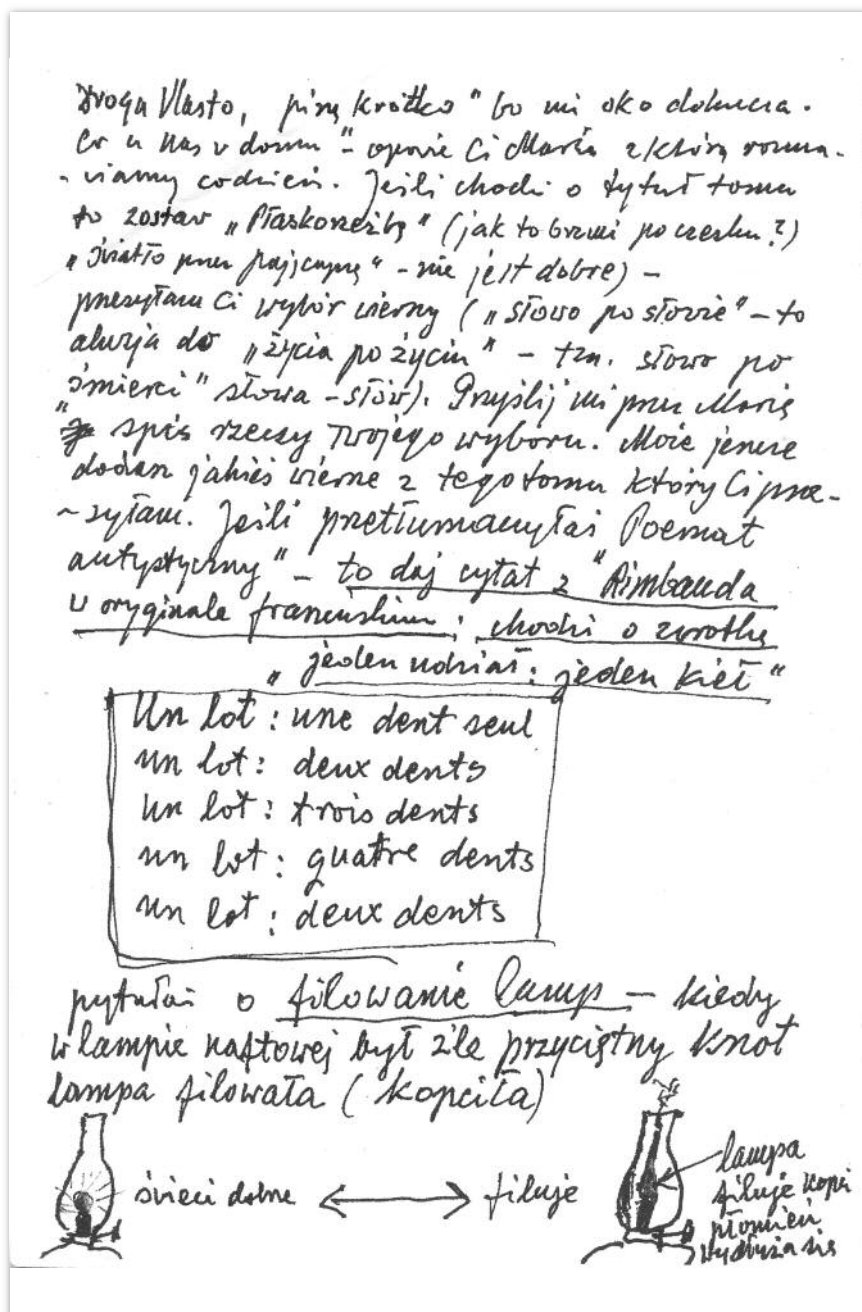 Droga Vlasto, piszę krótko" bo mi oko dokucza.
Co u nas w domu" - opowie Ci Maria z którą rozma-
- wiamy codzień. Jeśli chodzi o tytuł tomu
to zostaw „Płaskorzeźbę" (jak to brzmi po czesku?)
„Światło przez pajęczynę" - nie jest dobre) -
przesyłam Ci wybór wierszy („słowo po słowie" - to
aluzja do „życia po życiu" - tzn. słowo po
„śmierci" słowa - słów). Przyślij mi przez Marię
spis rzeczy Twojego wyboru. Może jeszcze
dodasz jakieś wiersze z tego tomu który Ci prze-
- syłam. Jeśli przetłumaczyłaś Poemat
autystyczny" - to daj cytat z "Rimbauda
w oryginale francuskim; chodzi o zwrotkę
„jeden udział: jeden kieł"
Un lot: une dent seul
un lot: deux dents
un lot: trois dents
un lot: quatre dents
un lot: deux dents
pytałaś o filowanie lamp - kiedy
w lampie naftowej był źle przycięty knot
lampa filowała (kopciła)
świeci dobrze
filuje
lampa
filuje kopci
płomień
wydłuża się